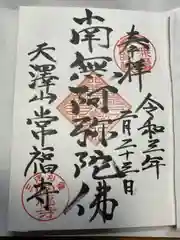 奉拝
令和三年
二月二十三日
南無阿彌陀佛
天澤山常福寺